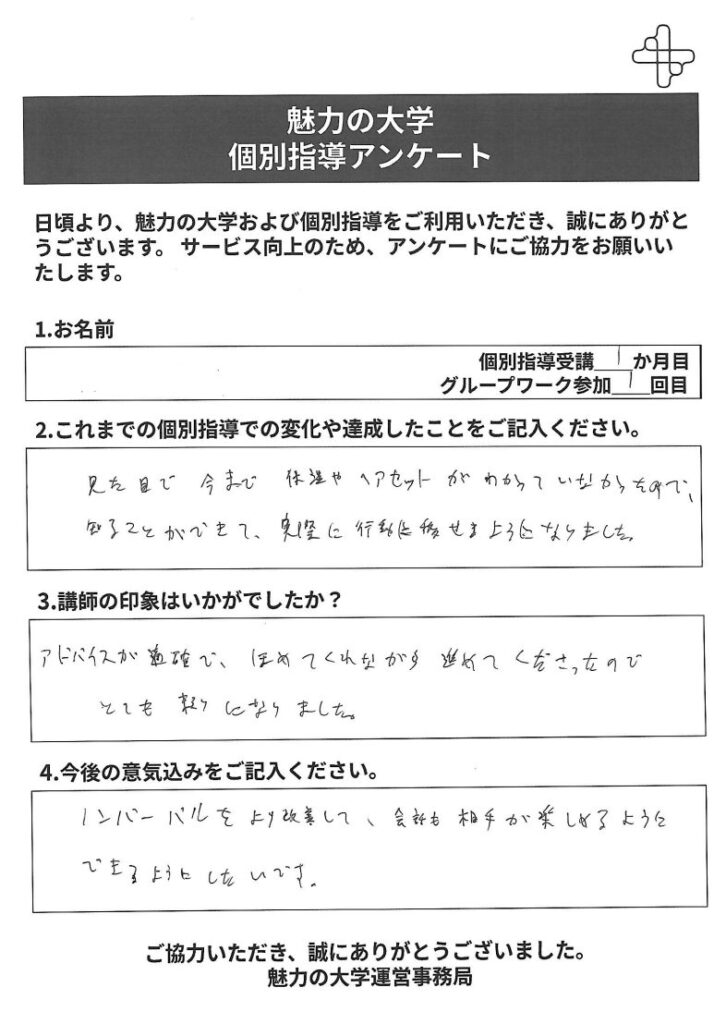 魅力の大学
個別指導アンケート
日頃より、魅力の大学および個別指導をご利用いただき、誠にありがと
うございます。 サービス向上のため、アンケートにご協力をお願いい
たします。
1.お名前
個別指導受講 1 か月目
グループワーク参加 1 回目
2.これまでの個別指導での変化や達成したことをご記入ください。
見た目で 今まで 保湿や ヘアセット が わかって いなかったので、
知ることができて、実際に行動に移せるようになりました。
3.講師の印象はいかがでしたか？
アドバイスが適確で、ほめてくれながら 進めて くださったので
とても 頼りになりました。
4.今後の意気込みをご記入ください。
ノンバーバルを より改善して、会話も 相手が楽しめるように
できるようにしたいです。
ご協力いただき、誠にありがとうございました。
魅力の大学運営事務局